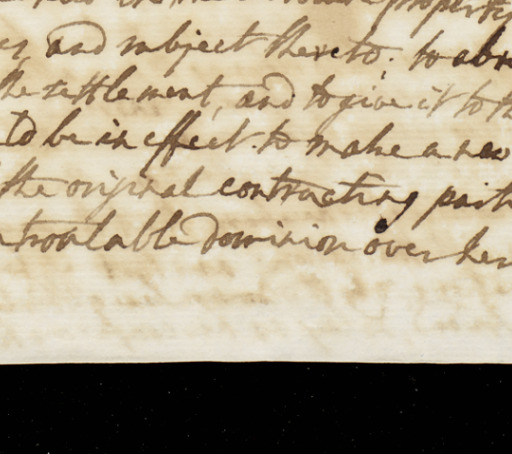 property
and subject thereto; to abr
the settlement, and to give it to th
to be in effect to make a new
the original contracting parti
ntroulable dominion over her